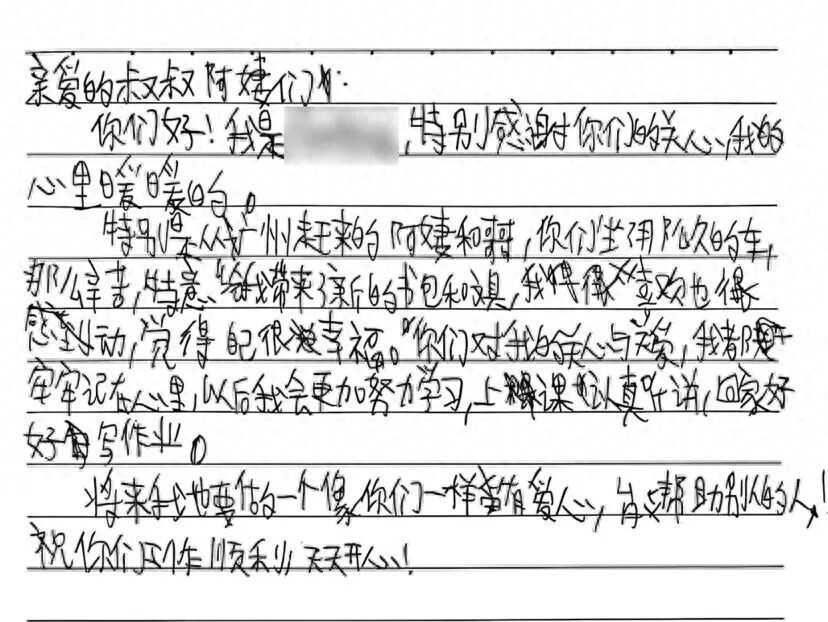 亲爱的叔叔阿姨们:
你们好!我是,特别感谢你们的关心,我的
心里暖暖的。
特别是从广州赶来的阿姨和,你们坐那久的车,
那么辛苦,特意给我带来了新的书包和文具,我很喜欢也很
感到动,觉得自己很幸福。你们对我的关心与关爱,我都
牢牢记在心里,以后我会更加努力学习,上课认真听讲,回家好
好写作业。
将来我也要做一个像你们一样富有爱心,肯帮助别人的人!
祝你们工作顺利,天天开心!